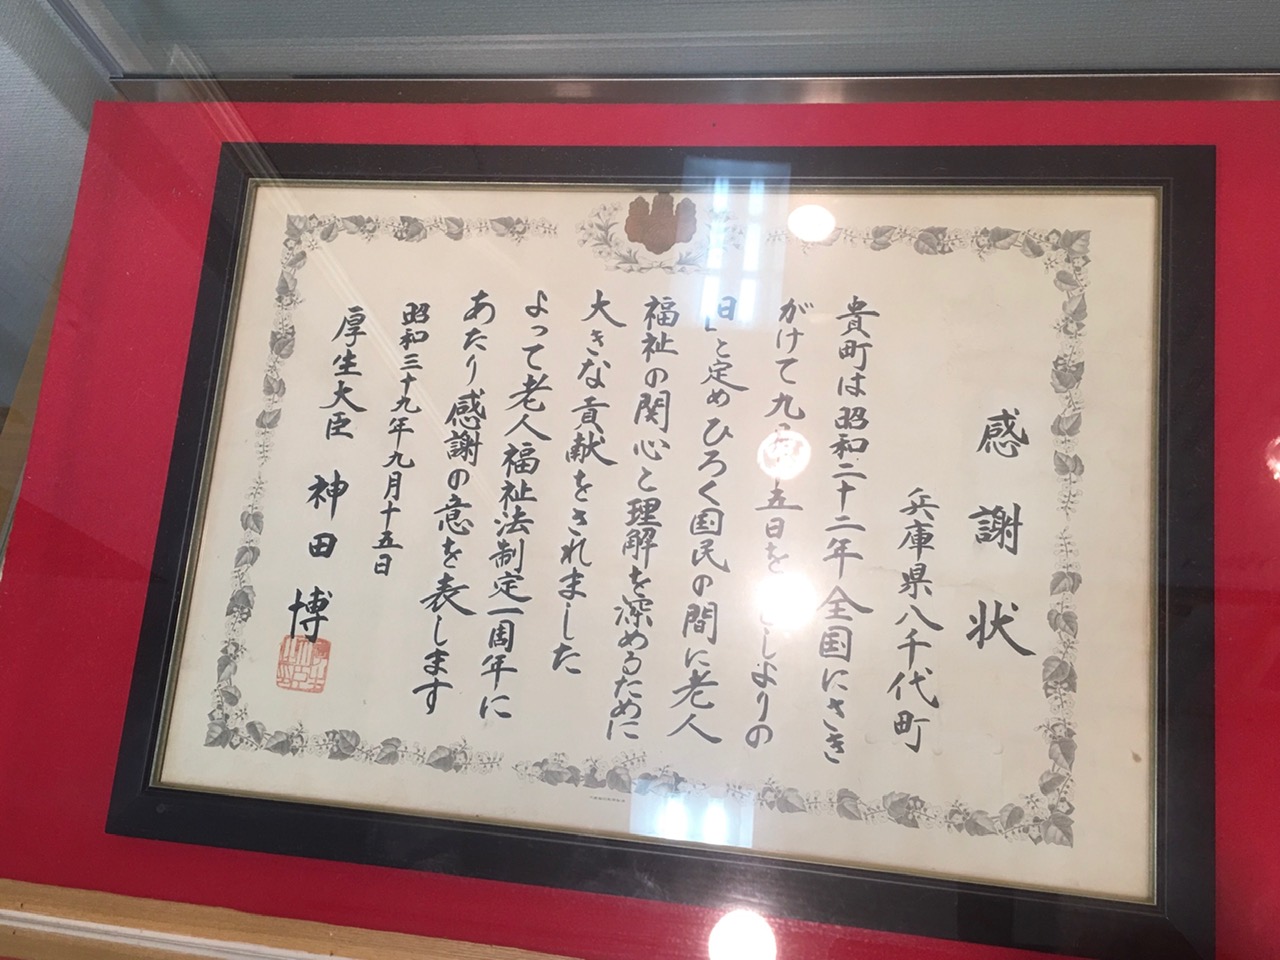 感謝状
兵庫県八千代町
貴町は昭和二十二年全国にさき
がけて九 五日を しよりの
日」と定めひろく国民の間に老人
福祉の関心と理解を深めるために
大きな貢献をされました
よって老人福祉法制定一周年に
あたり感謝の意を表します
昭和三十九年九月十五日
厚生大臣 神田博